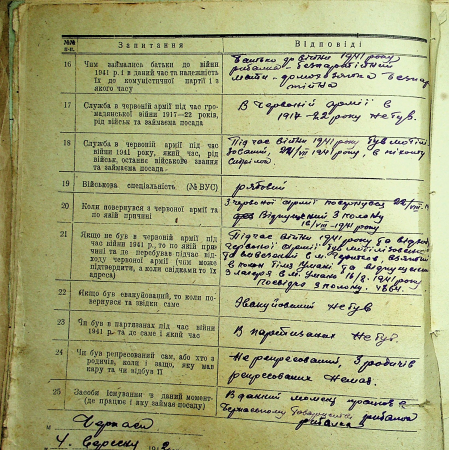 №№ п-п.
Запитання
Відповіді
16
Чим займались батьки до війни
1941 р. і в даний час та належність
їх до комуністичної партії і з
якого часу
Батько до війни 1941 року
рибалка - безпартійний
мати - домохазяйка безпар
тійна
17
Служба в червоній армії під час гро-
мадянської війни 1917—22 років,
рід військ та займаєма посада
В Червоній армії в
1917-22 року не був.
18
Служба в червоній армії під час
війни 1941 року, який час, рід
військ, останнє військове звання
та займаєма посада
Під час війни 1941 року був мобілі
зований
1941 року
19
Військова спеціальність (№ ВУС)
рядовий
20
Коли повернувся з червоної армії та
по якій причині
З червоної армії повернувся
Відпущений з полону
16/VIII-1941 року
21
Якщо не був в червоній армії під
час війни 1941 р., то по якій при-
чині та де перебував підчас від-
ходу червоної армії (чим може
підтвердити, а коли свідками то їх
адреса)
Під час війни 1941 року та відходу
Червоної армії був мобілізований
в м.
Умані та відпущений
з лагеря в м. Умань 16/8. 1941 року
з полону. 4864.
22
Якщо був евакуйований, то коли по-
вернувся та звідки саме
Эвакуйований не був
23
Чи був в партизанах під час війни
1941 р. та де саме і який час
В партизанах не був.
24
Чи був репресований сам, або хто з
родичів, коли і за що, яку мав
кару та чи відбув її
Не репресований, з родичів
репресованих немає.
25
Засоби існування в даний момент
(де працює і яку займає посаду)
В даний момент працює в
Черкаському товаристві рибалок
рибалка
м
Черкаси
4. Вересня 194